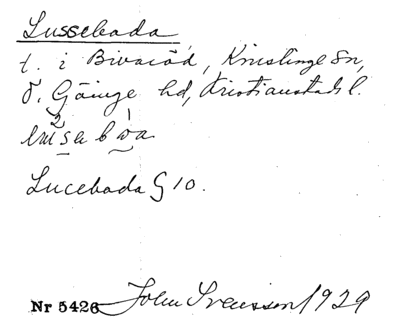 Lussebada
t. i Bivaröd, Knislinge sn,
Ö. Göinge hd, Kristianstads l.
Lucebada G 10.
Nr 5426 John Svensson 1929